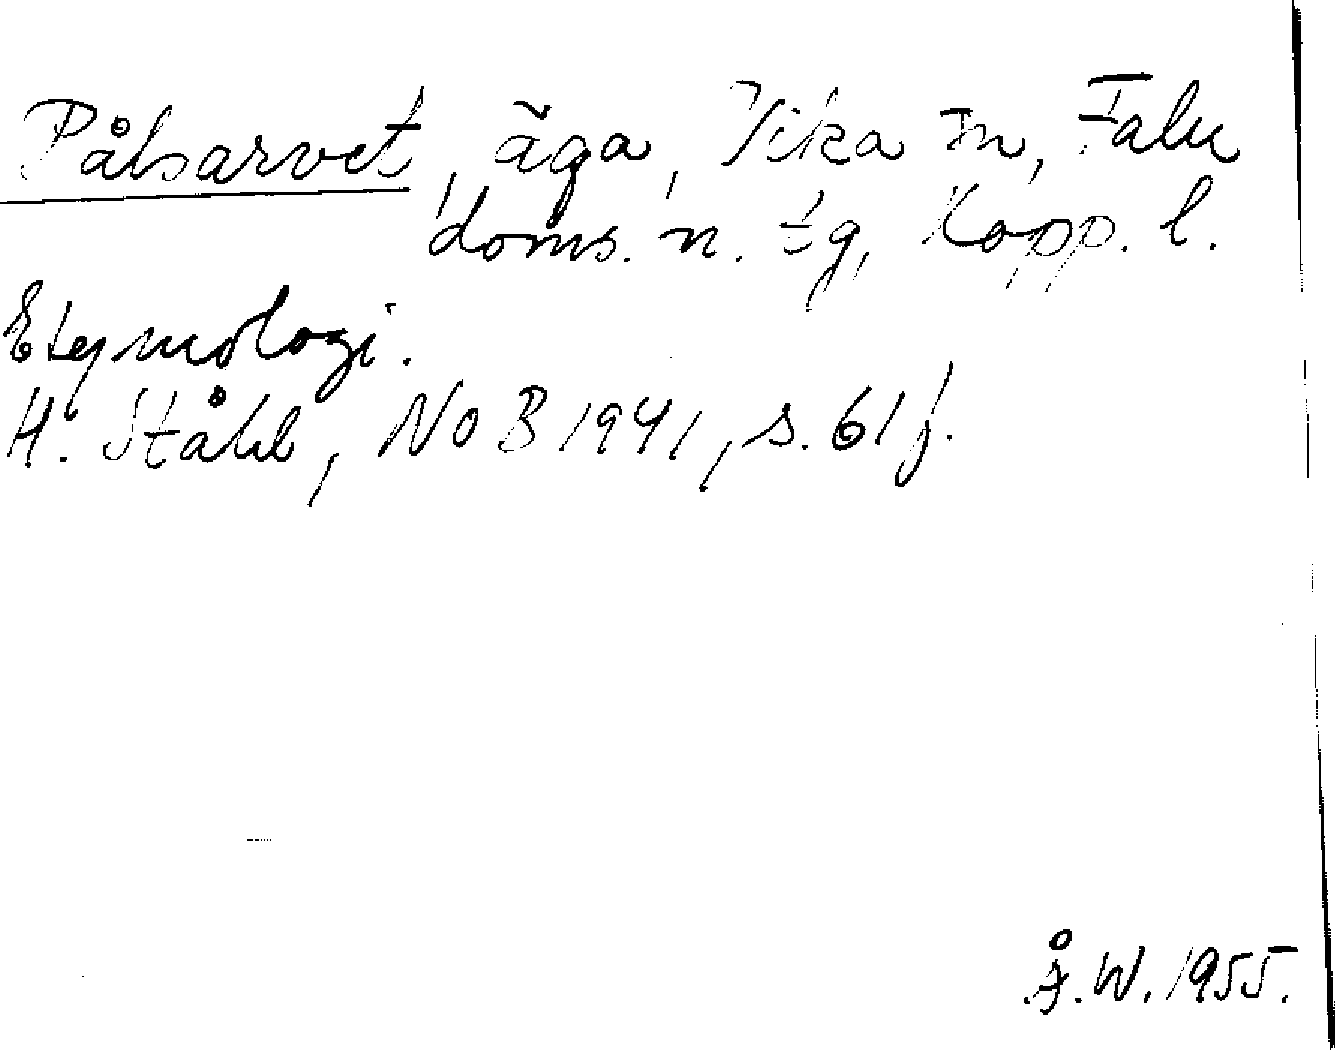 Pålsarvet, äga, Vika sn, Falu
doms. n. tg, Kopp. l.
Etymologi.
H. Ståhl, NoB 1941, s. 61 f.
Å. W. 1955.